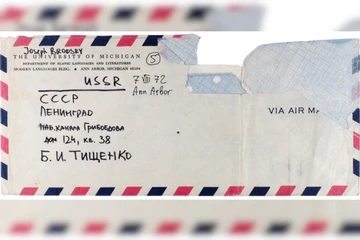 Joseph Brodsky
THE UNIVERSITY OF MICHIGAN
DEPARTMENT OF SLAVIC LANGUAGES AND LITERATURES
MODERN LANGUAGES BLDG. • ANN ARBOR, MICHIGAN 48104
5
USSR
7 VIII 72
Ann Arbor
СССР
ЛЕНИНГРАД
НАБ. КАНАЛА ГРИБОЕДОВА
ДОМ 124, КВ. 38
Б. И. ТИЩЕНКО
VIA AIR MA